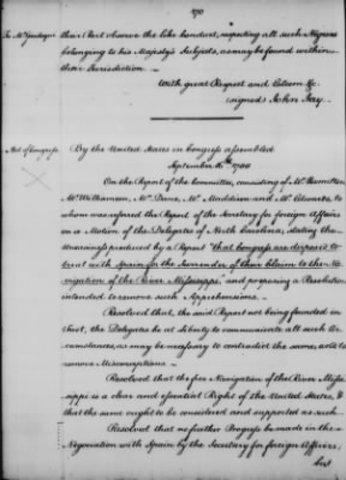 270
To Mr Gardoqui
their Part observe the like Conduct, respecting all such Negroes
belonging to his Majesty's Subjects, as may be found within
their Jurisdiction —
With great Respect and Esteem &c
signed John Jay.
Act of Congress
By the United States in Congress assembled
September 16th 1788
On the Report of the Committee, consisting of Mr Hamilton
Mr Williamson, Mr Dane, Mr Maddison and Mr Edwards, to
whom was referred the Report of the Secretary for foreign Affairs
on a Motion of the Delegates of North Carolina, stating the
Uneasiness produced by a Report "that Congress are disposed to
treat with Spain for the Surrender of their Claim to the Na-
vigation of the River Mississippi, and proposing a Resolution
intended to remove such Apprehensions. —
Resolved that, the said Report not being founded in
Fact, the Delegates be at liberty to communicate all such Cir-
cumstances, as may be necessary to contradict the same, and to
remove Misconceptions. —
Resolved that the free Navigation of the River Missis-
sippi is a clear and essential Right of the United States, &
that the same ought to be considered and supported as such
Resolved that no further Progress be made in the
Negociation with Spain by the Secretary for foreign Affairs,
but